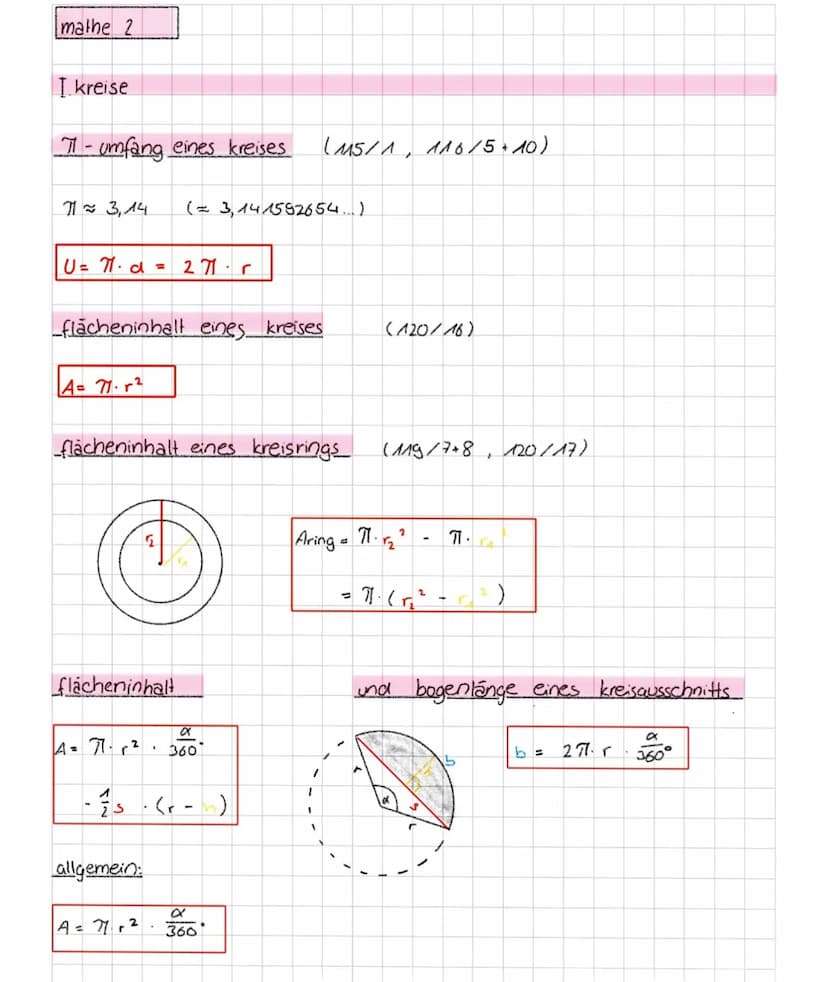 mathe 2
I. kreise
π - umfang eines kreises (115/1 , 116/5+10)
π ≈ 3,14 (= 3,141592654...)
U = π · d = 2π · r
flächeninhalt eines kreises (120/16)
A = π · r²
flächeninhalt eines kreisrings (119/7+8 , 120/17)
r₂ r₁
Aring = π · r₂² - π · r₁²
= π · (r₂² - r₁²)
flächeninhalt und bogenlänge eines kreisausschnitts
A = π · r² · α/360°
- 1/2 s · (r - h)
r α r s h b
b = 2π · r · α/360°
allgemein:
A = π · r² · α/360°